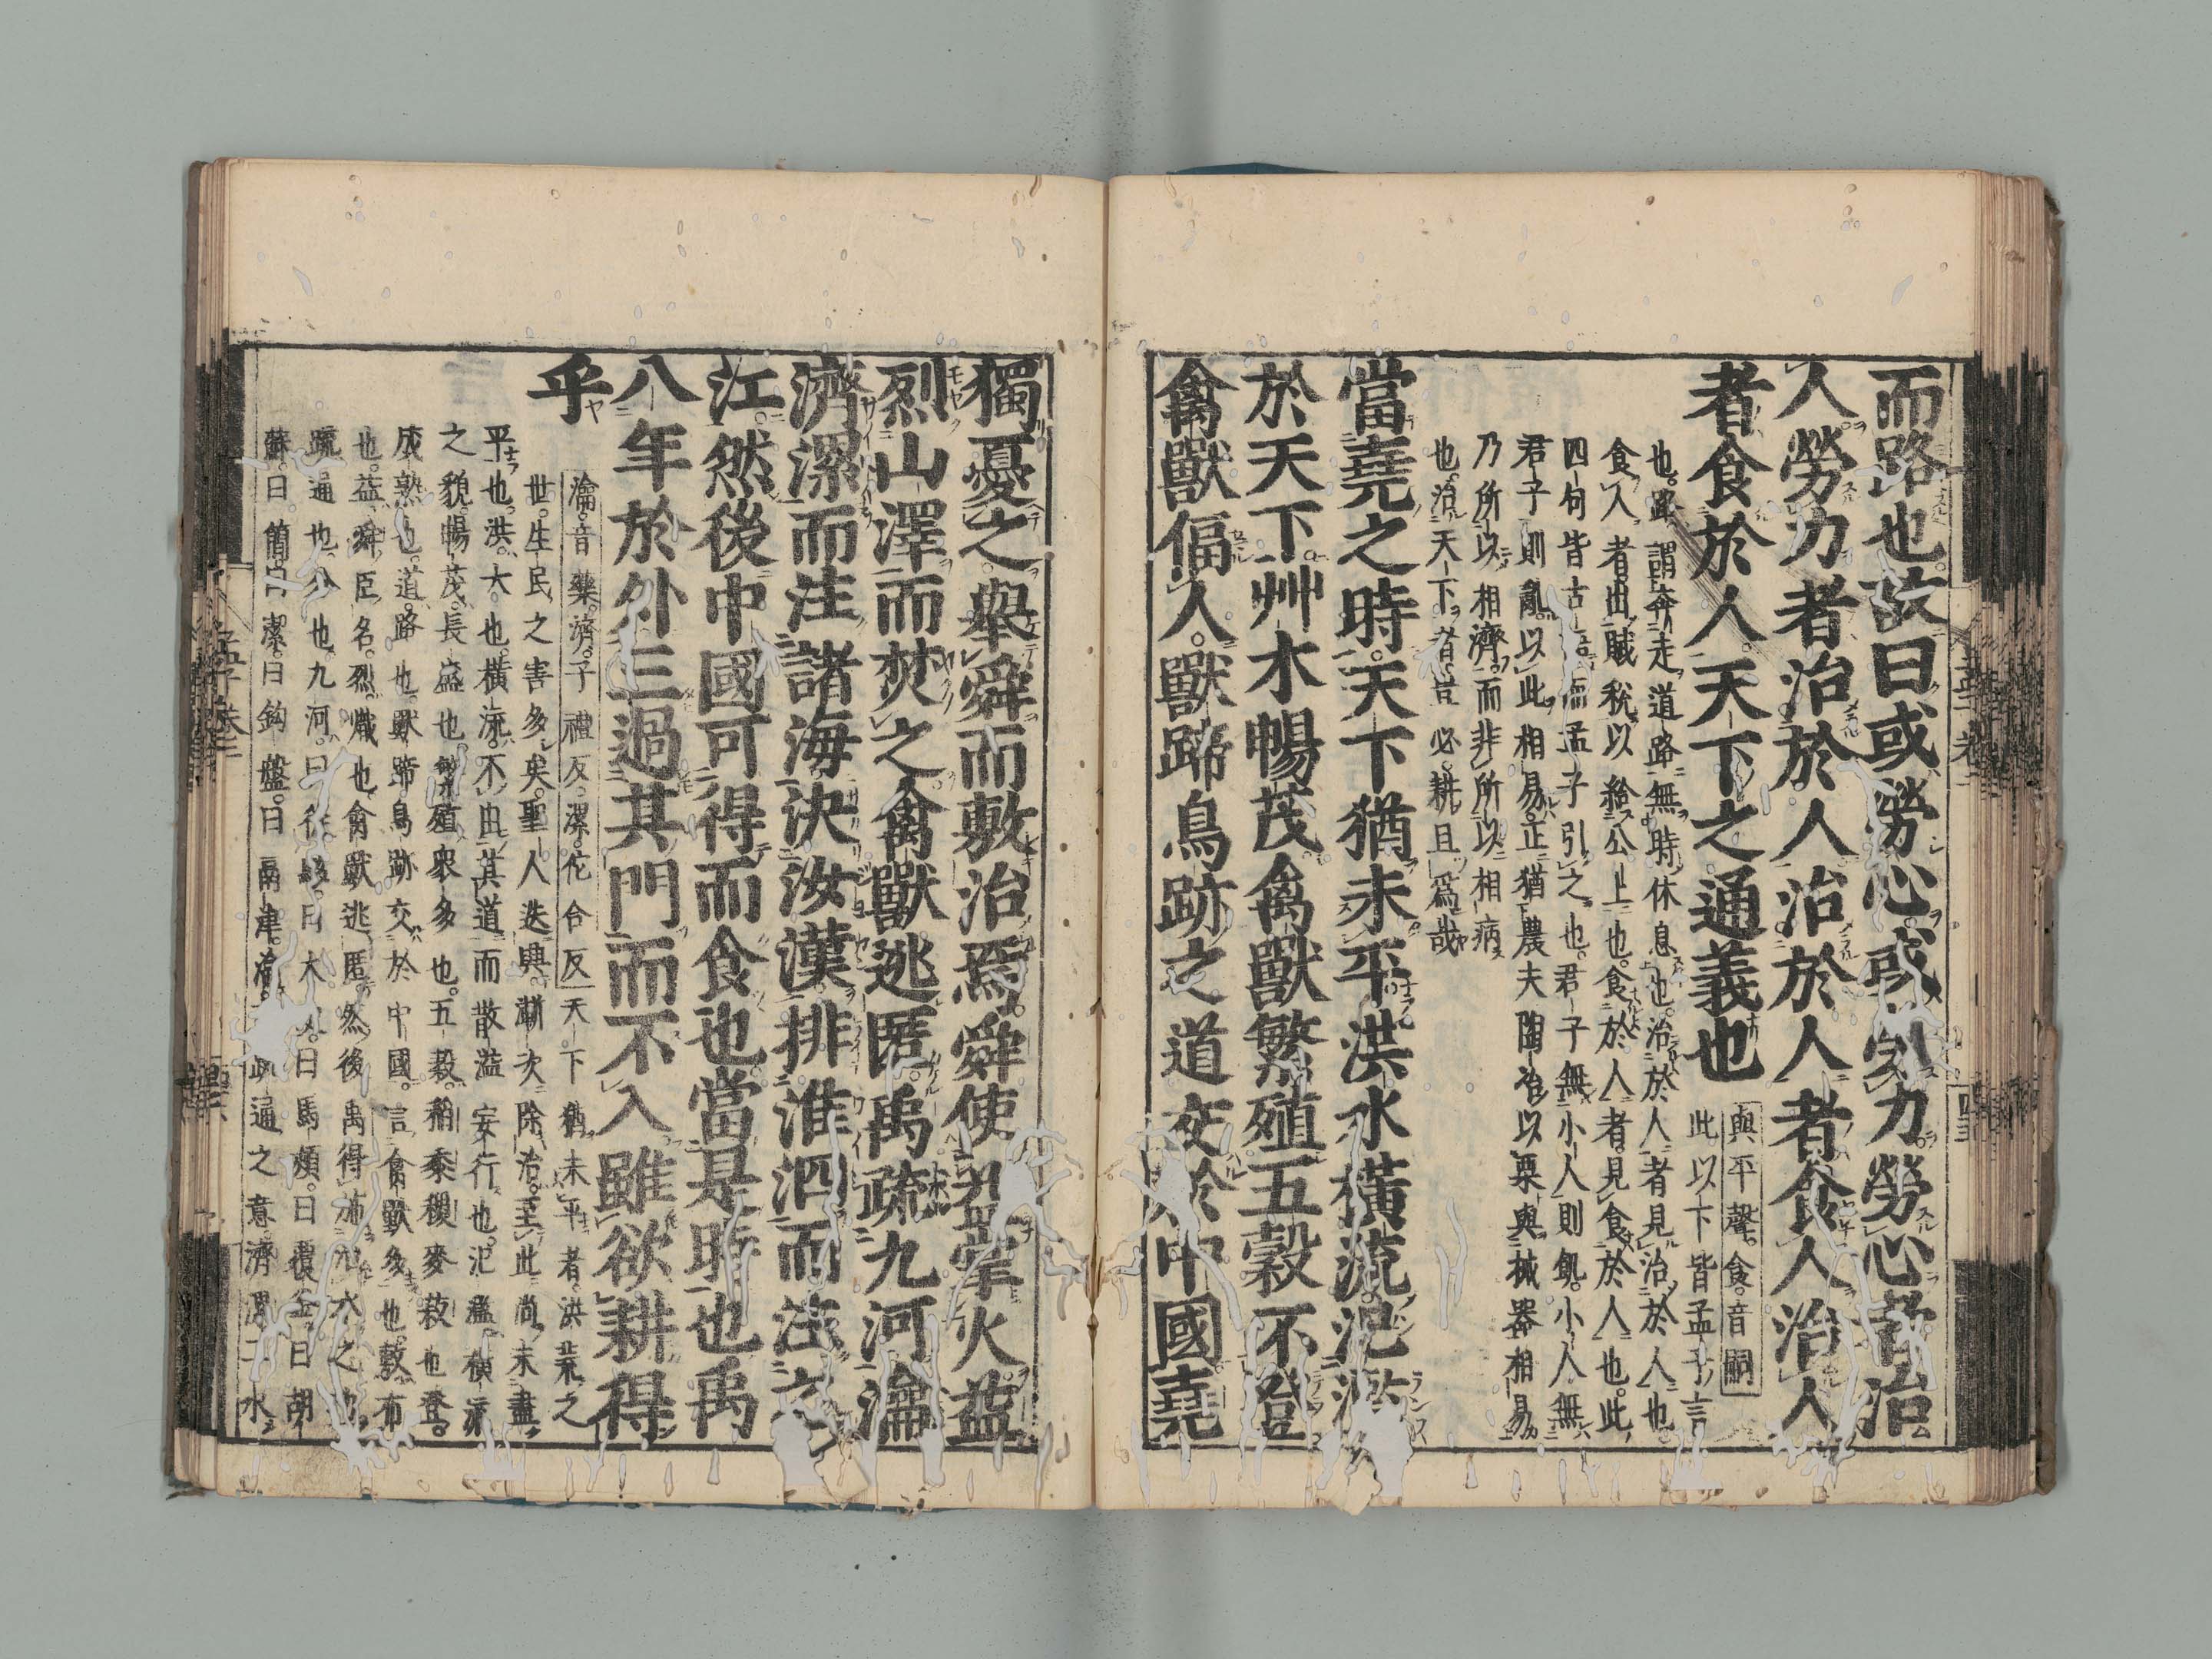 而路也。故曰或勞心。或勞力。勞心者治
人勞力者治於人治於人者食人治人
者食於人。天下之通義也
與平聲。食。音嗣
此以下皆孟子言
也。路謂奔走道路無時休息也。治於人者見治於人也。
食人者出賦稅以給公上也。食於人者。見食於人也。此
四句皆古語而孟子引之也。君子無小人則飢。小人無
君子則亂。以此相易。正猶農夫陶冶以粟與械器相易。
乃所以相濟。而非所以相病
也。治天下者豈必耕且爲哉
當堯之時。天下猶未平洪水橫流。氾濫
於天下。艸木暢茂。禽獸繁殖五穀不登
禽獸偪人。獸蹄鳥跡之道交於中國堯
獨憂之。舉舜而敷治焉。舜使益掌火。益
烈山澤而焚之禽獸逃匿。禹疏九河瀹
濟漯而注諸海決汝漢排淮泗而注之
江。然後中國可得而食也。當是時也禹
八年於外三過其門而不入雖欲耕得
乎
瀹。音藥。濟。子禮反。漯。佗合反天下猶未平者。洪荒之
世。生民之害多矣。聖人迭興。漸次除治。至此尚未盡
平也。洪。大也。橫流。不由其道而散溢妄行也。氾濫。橫流
之貌。暢茂。長盛也。繁殖衆多也。五穀。稻黍稷麥菽也登。
成熟也。道。路也。獸蹄鳥跡交於中國。言禽獸多也。敷。布
也。益。舜臣名。烈。熾也。禽獸逃匿。然後禹得施治水之功
疏。通也。分也。九河。曰徒駭曰太史。曰馬頰。曰覆釜。曰胡
蘇。曰簡。曰潔。曰鉤盤。曰鬲津。瀹。疏通之意。濟漯二水
孟子卷三